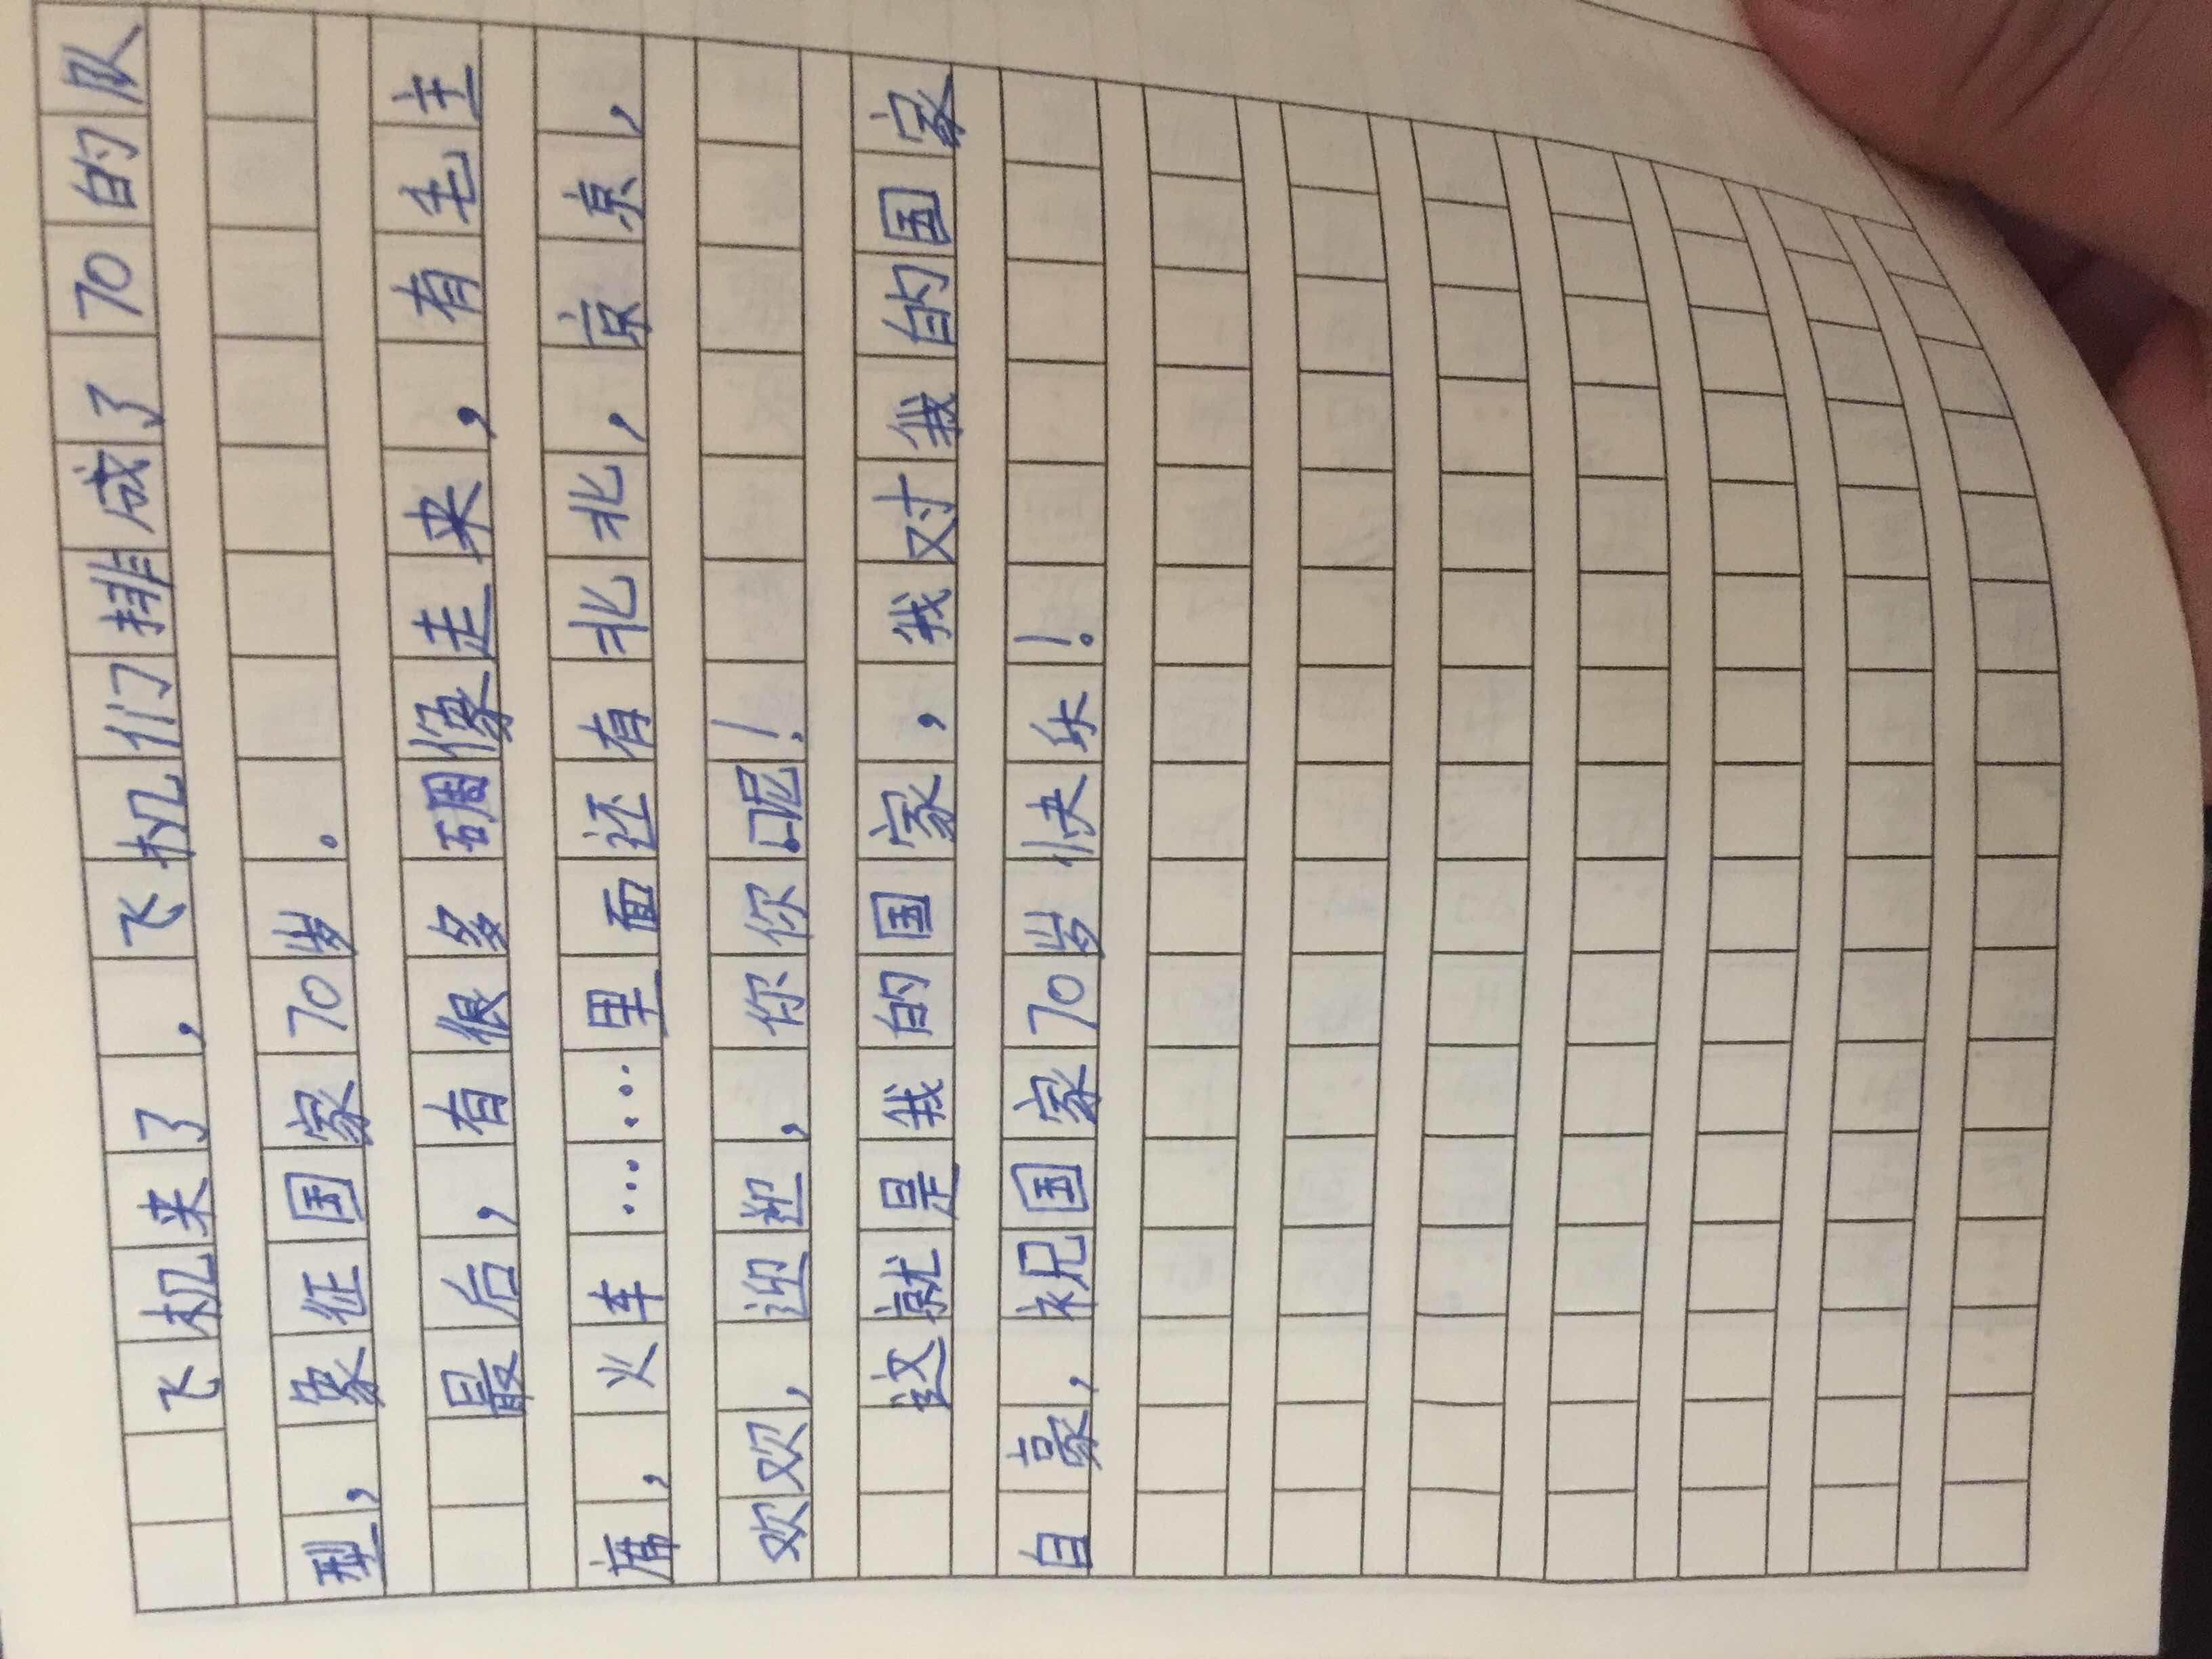 飞机来了，飞机们排成了70的队
型，象征国家70岁。
最后，有很多碉像走来，有毛主
席，火车……里面还有北北，京京，
欢欢，迎迎，你你呢！
这就是我的国家，我对我的国家
自豪，祝国家70岁快乐！